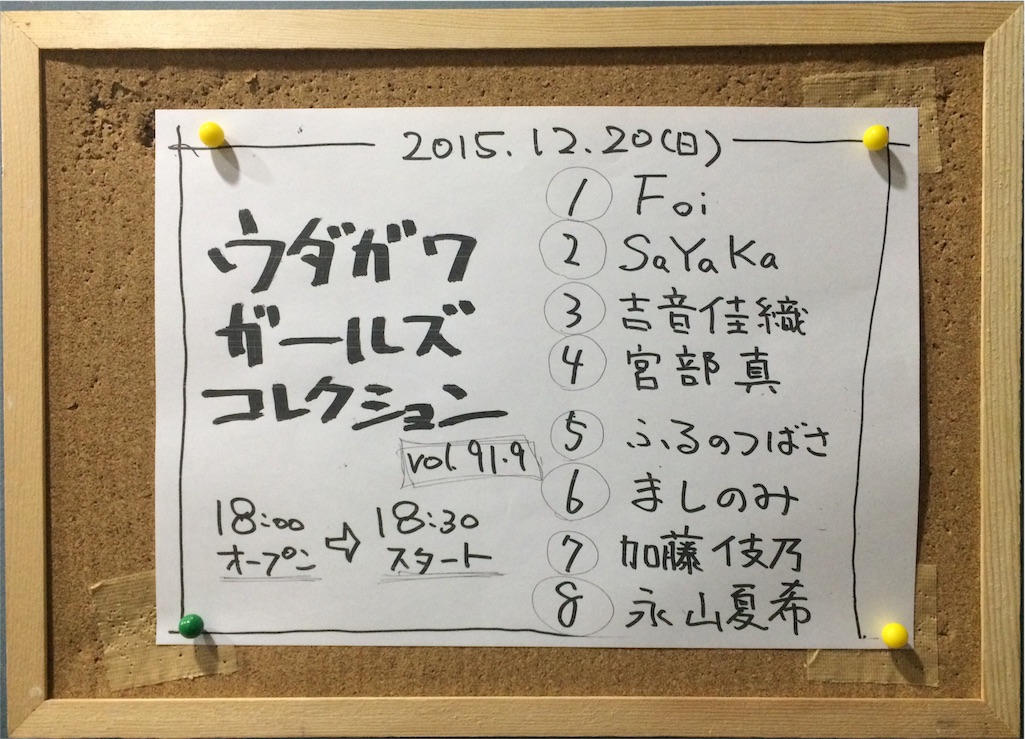 2015.12.20(日)
ウダガワ
ガールズ
コレクション
vol.91.9
18:00 ⇨ 18:30
オープン スタート
① Foi
② SaYaKa
③ 吉音佳織
④ 宮部真
⑤ ふるのつばさ
⑥ ましのみ
⑦ 加藤伎乃
⑧ 永山夏希